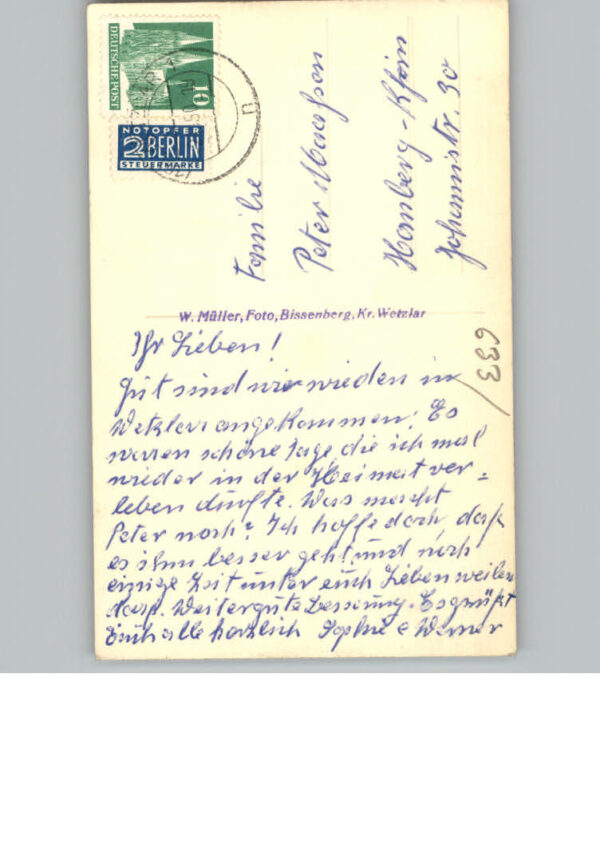 DEUTSCHE POST
10
NOTOPFER
2 BERLIN
STEUERMARKE
Familie
Peter
Homberg - Rhein
Johannistr. 30
W. Müller, Foto, Bissenberg, Kr. Wetzlar
633
Ihr Lieben!
Gut sind wir wieder in
Wetzlar angekommen. Es
waren schöne Tage, die ich mal
wieder in der Heimat ver=
leben durfte. Was macht
Peter noch? Ich hoffe doch, daß
es ihm besser geht, und noch
einige Zeit unter euch Lieben weilen
darf. Weiter gute Besserung. Es grüßt
Euch alle herzlich Sophie e Werner